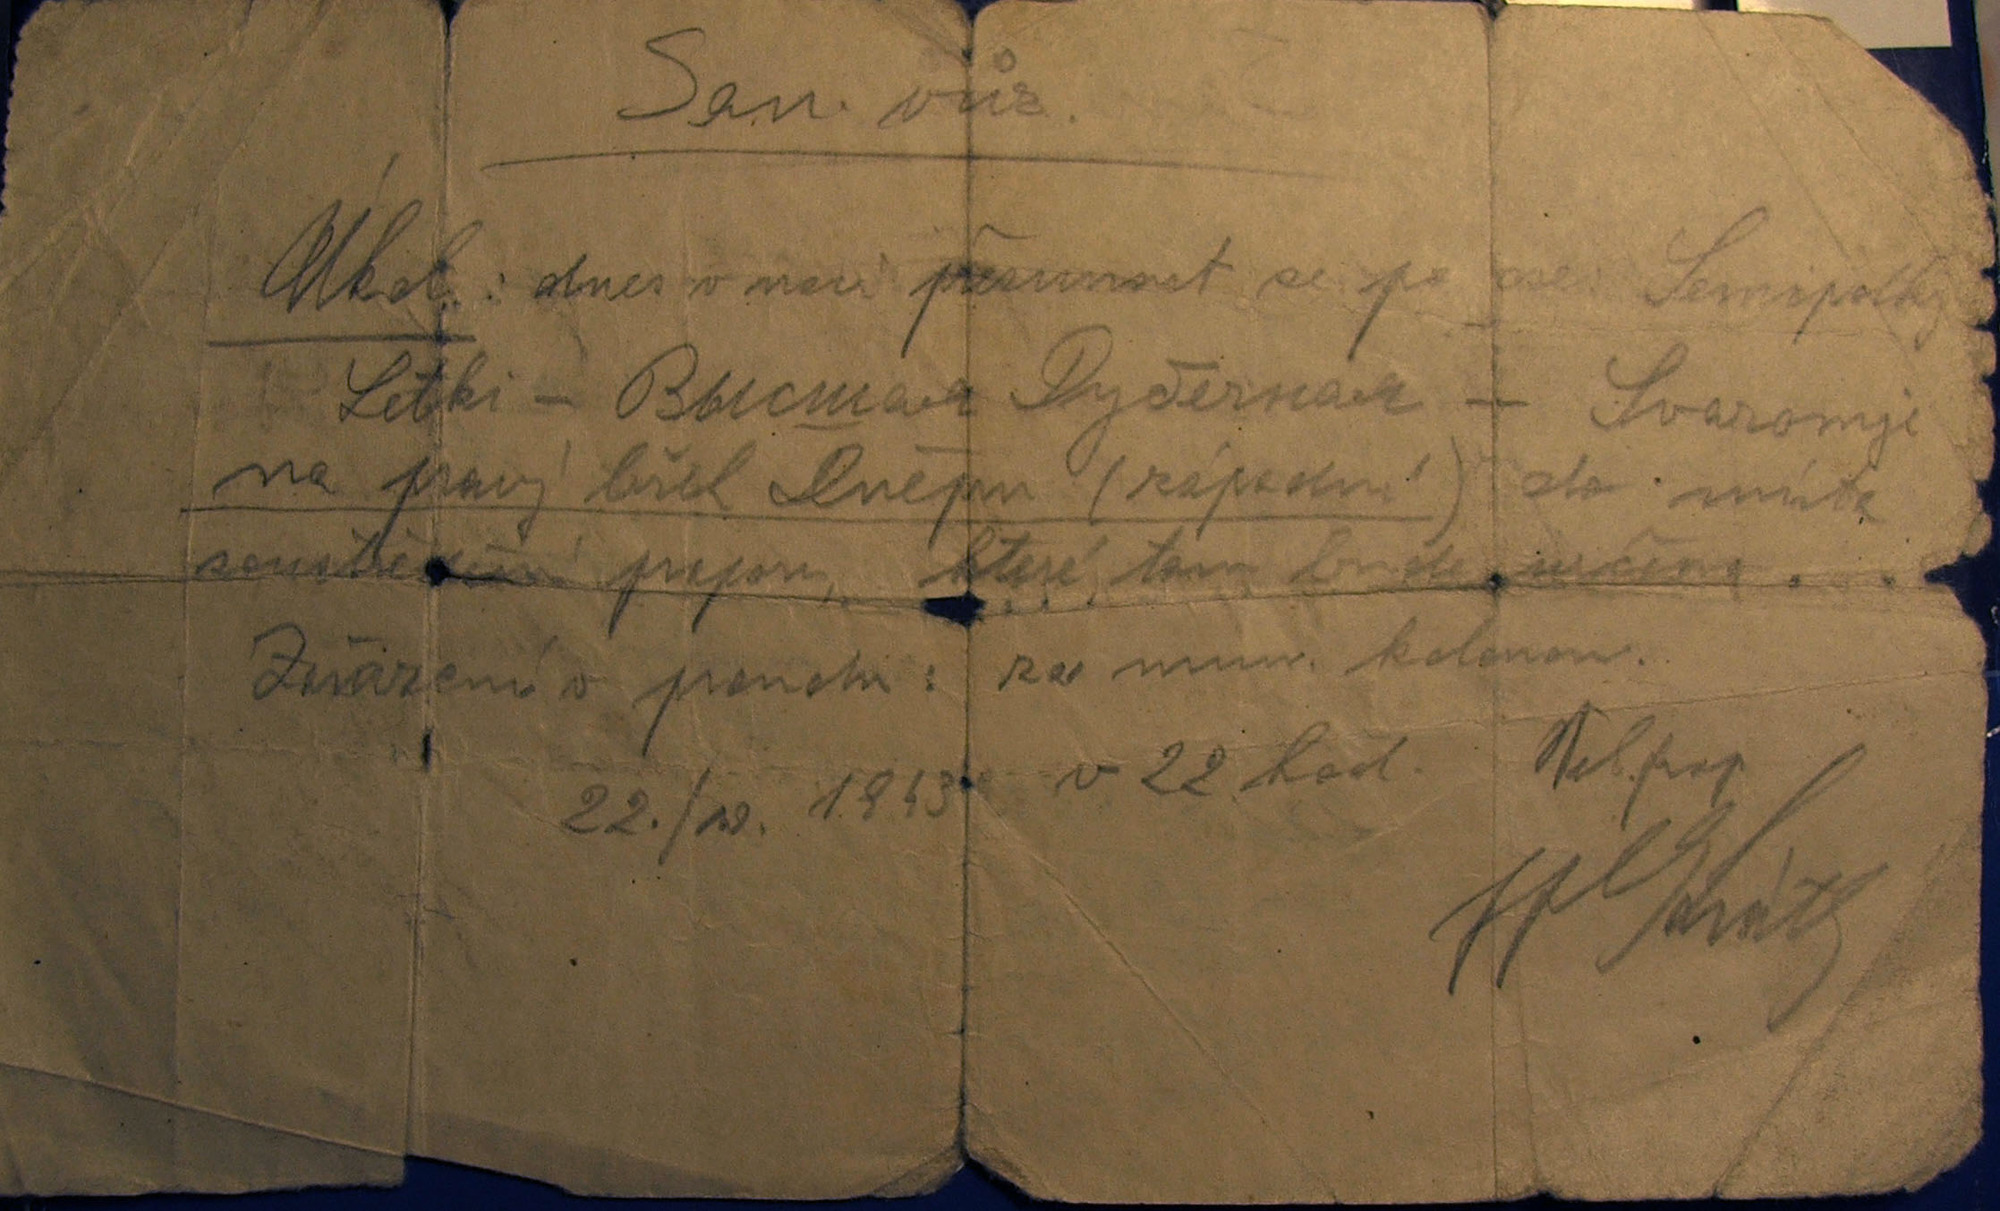 San. vůz.
Úkol: dnes v noci přesunout se po ose: Semipolky
Letki – Высшая Дубечная – Svaromje
na pravý břeh Dněpru (západní) do místa
soustředění praporu, které tam bude určeno.
Zařazení v proudu: za mun. kolonou.
22./10. 1943 v 22 hod. Vel. prap